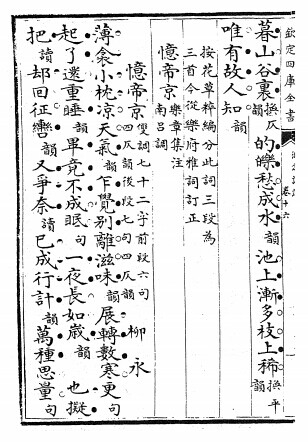 欽定四庫全書
卷十六
暮山谷裏換仄韻的皪愁成水韻池上漸多枝上稀換平韻
唯有故人知韻
按花草粹編分此詞三段為
三首今從樂府雅詞訂正
憶帝京樂章集注南呂調
憶帝京雙調七十二字前段六句四仄韻後段七句四仄韻柳永
薄衾小枕凉天氣韻乍覺別離滋味韻展轉數寒更句
起了還重睡韻畢竟不成眠句一夜長如歲韻也擬
把讀却回征轡韻又爭奈讀已成行計韻萬種思量句